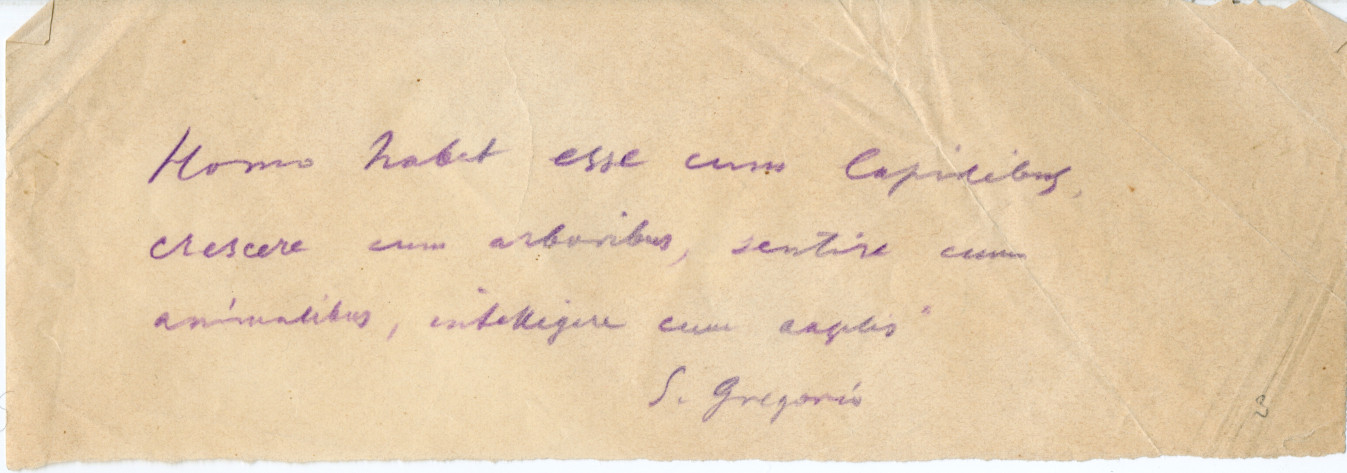 Homo habet esse cum lapidibus,
crescere cum arboribus, sentire cum
animalibus, intelligere cum angelis"
S. Gregorio